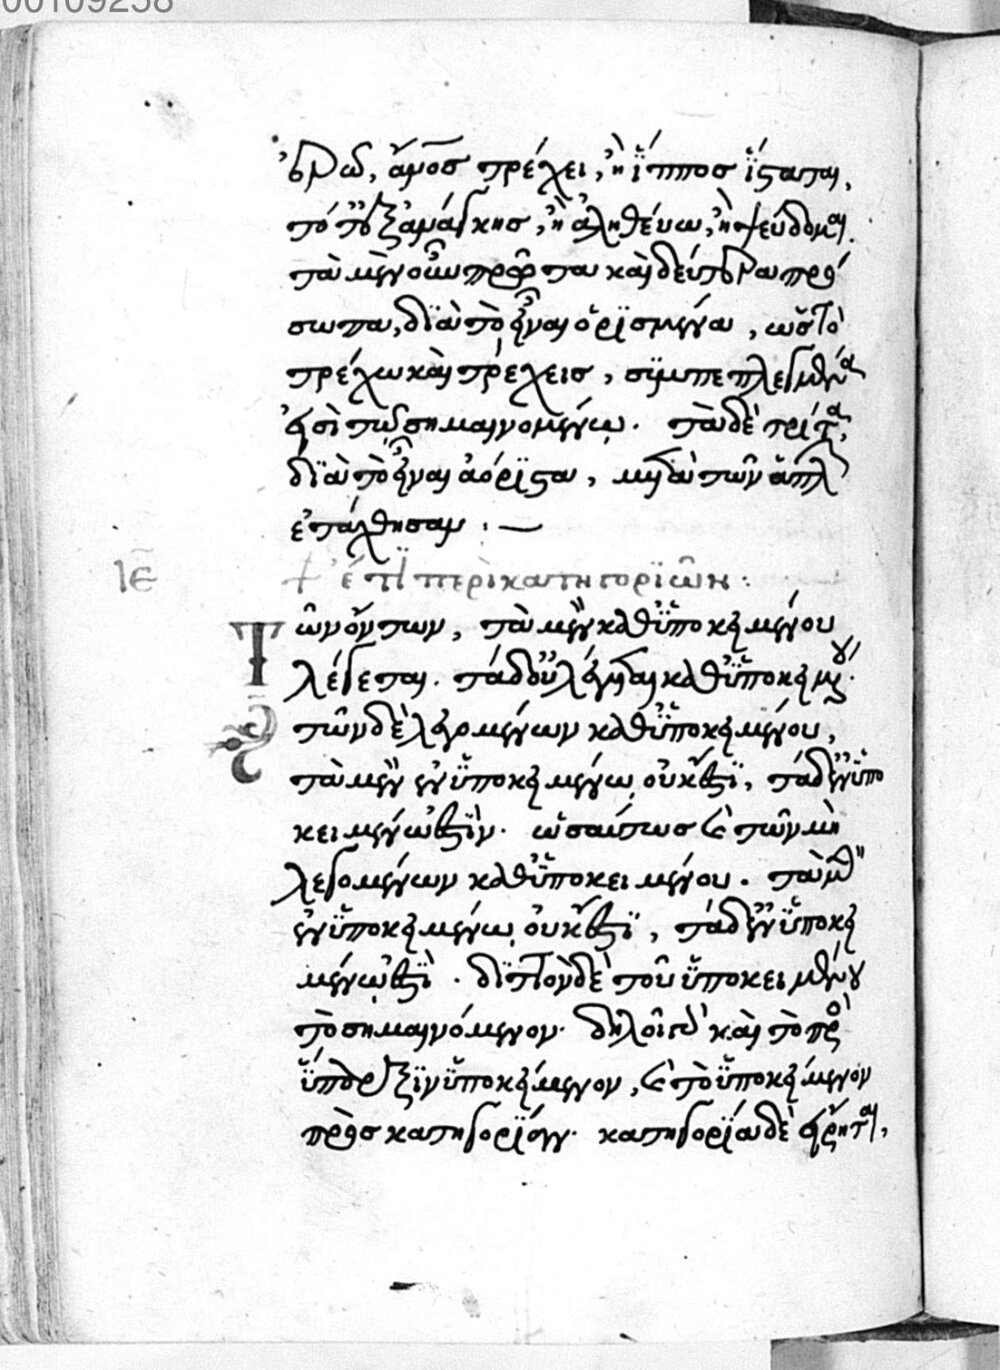 00109258
ἄνος τρέχει, ἢ ἵππος ἵσταται,
ἢ ἀληθεύω, ἢ ψεύδομαι.
τὰ μὲν οὖν πρῶτα καὶ δεύτερα πρό
σωπα, διὰ τὸ εἶναι ὁρισμένα, ὡς τὸ
τρέχω καὶ τρέχεις, συμπεπλεγμένα
εἰσὶ τῷ σημαινομένῳ. τὰ δὲ τρίτα,
διὰ τὸ εἶναι ἀόριστα, μετὰ τῶν ἁπλῶν
ἐτάχθησαν :—
ιε + ἔτι περὶ κατηγοριῶν :
Τῶν ὄντων, τὰ μὲν καθ' ὑποκειμένου
λέγεται. τὰ δ' οὐ λέγεται καθ' ὑποκειμένου.
τῶν δὲ λεγομένων καθ' ὑποκειμένου,
τὰ μὲν ἐν ὑποκειμένῳ οὐκ ἔστι, τὰ δ' ἐν ὑπο
κειμένῳ ἐστίν. ὡσαύτως καὶ τῶν μὴ
λεγομένων καθ' ὑποκειμένου. τὰ μὲν
ἐν ὑποκειμένῳ οὐκ ἔστι, τὰ δ' ἐν ὑποκει
μένῳ ἐστὶ. διττὸν δὲ τοῦ ὑποκειμένου
τὸ σημαινόμενον. δηλοῖ καὶ τὸ πρὸς
ὕπαρξιν ὑποκείμενον, καὶ τὸ ὑποκείμενον
πρὸς κατηγορίαν. κατηγορία δὲ εἴρηται,